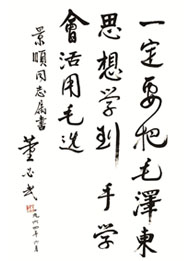 一定要把毛澤東
思想学到手学
會活用毛选
景順同志属書
董必武
一九六四年